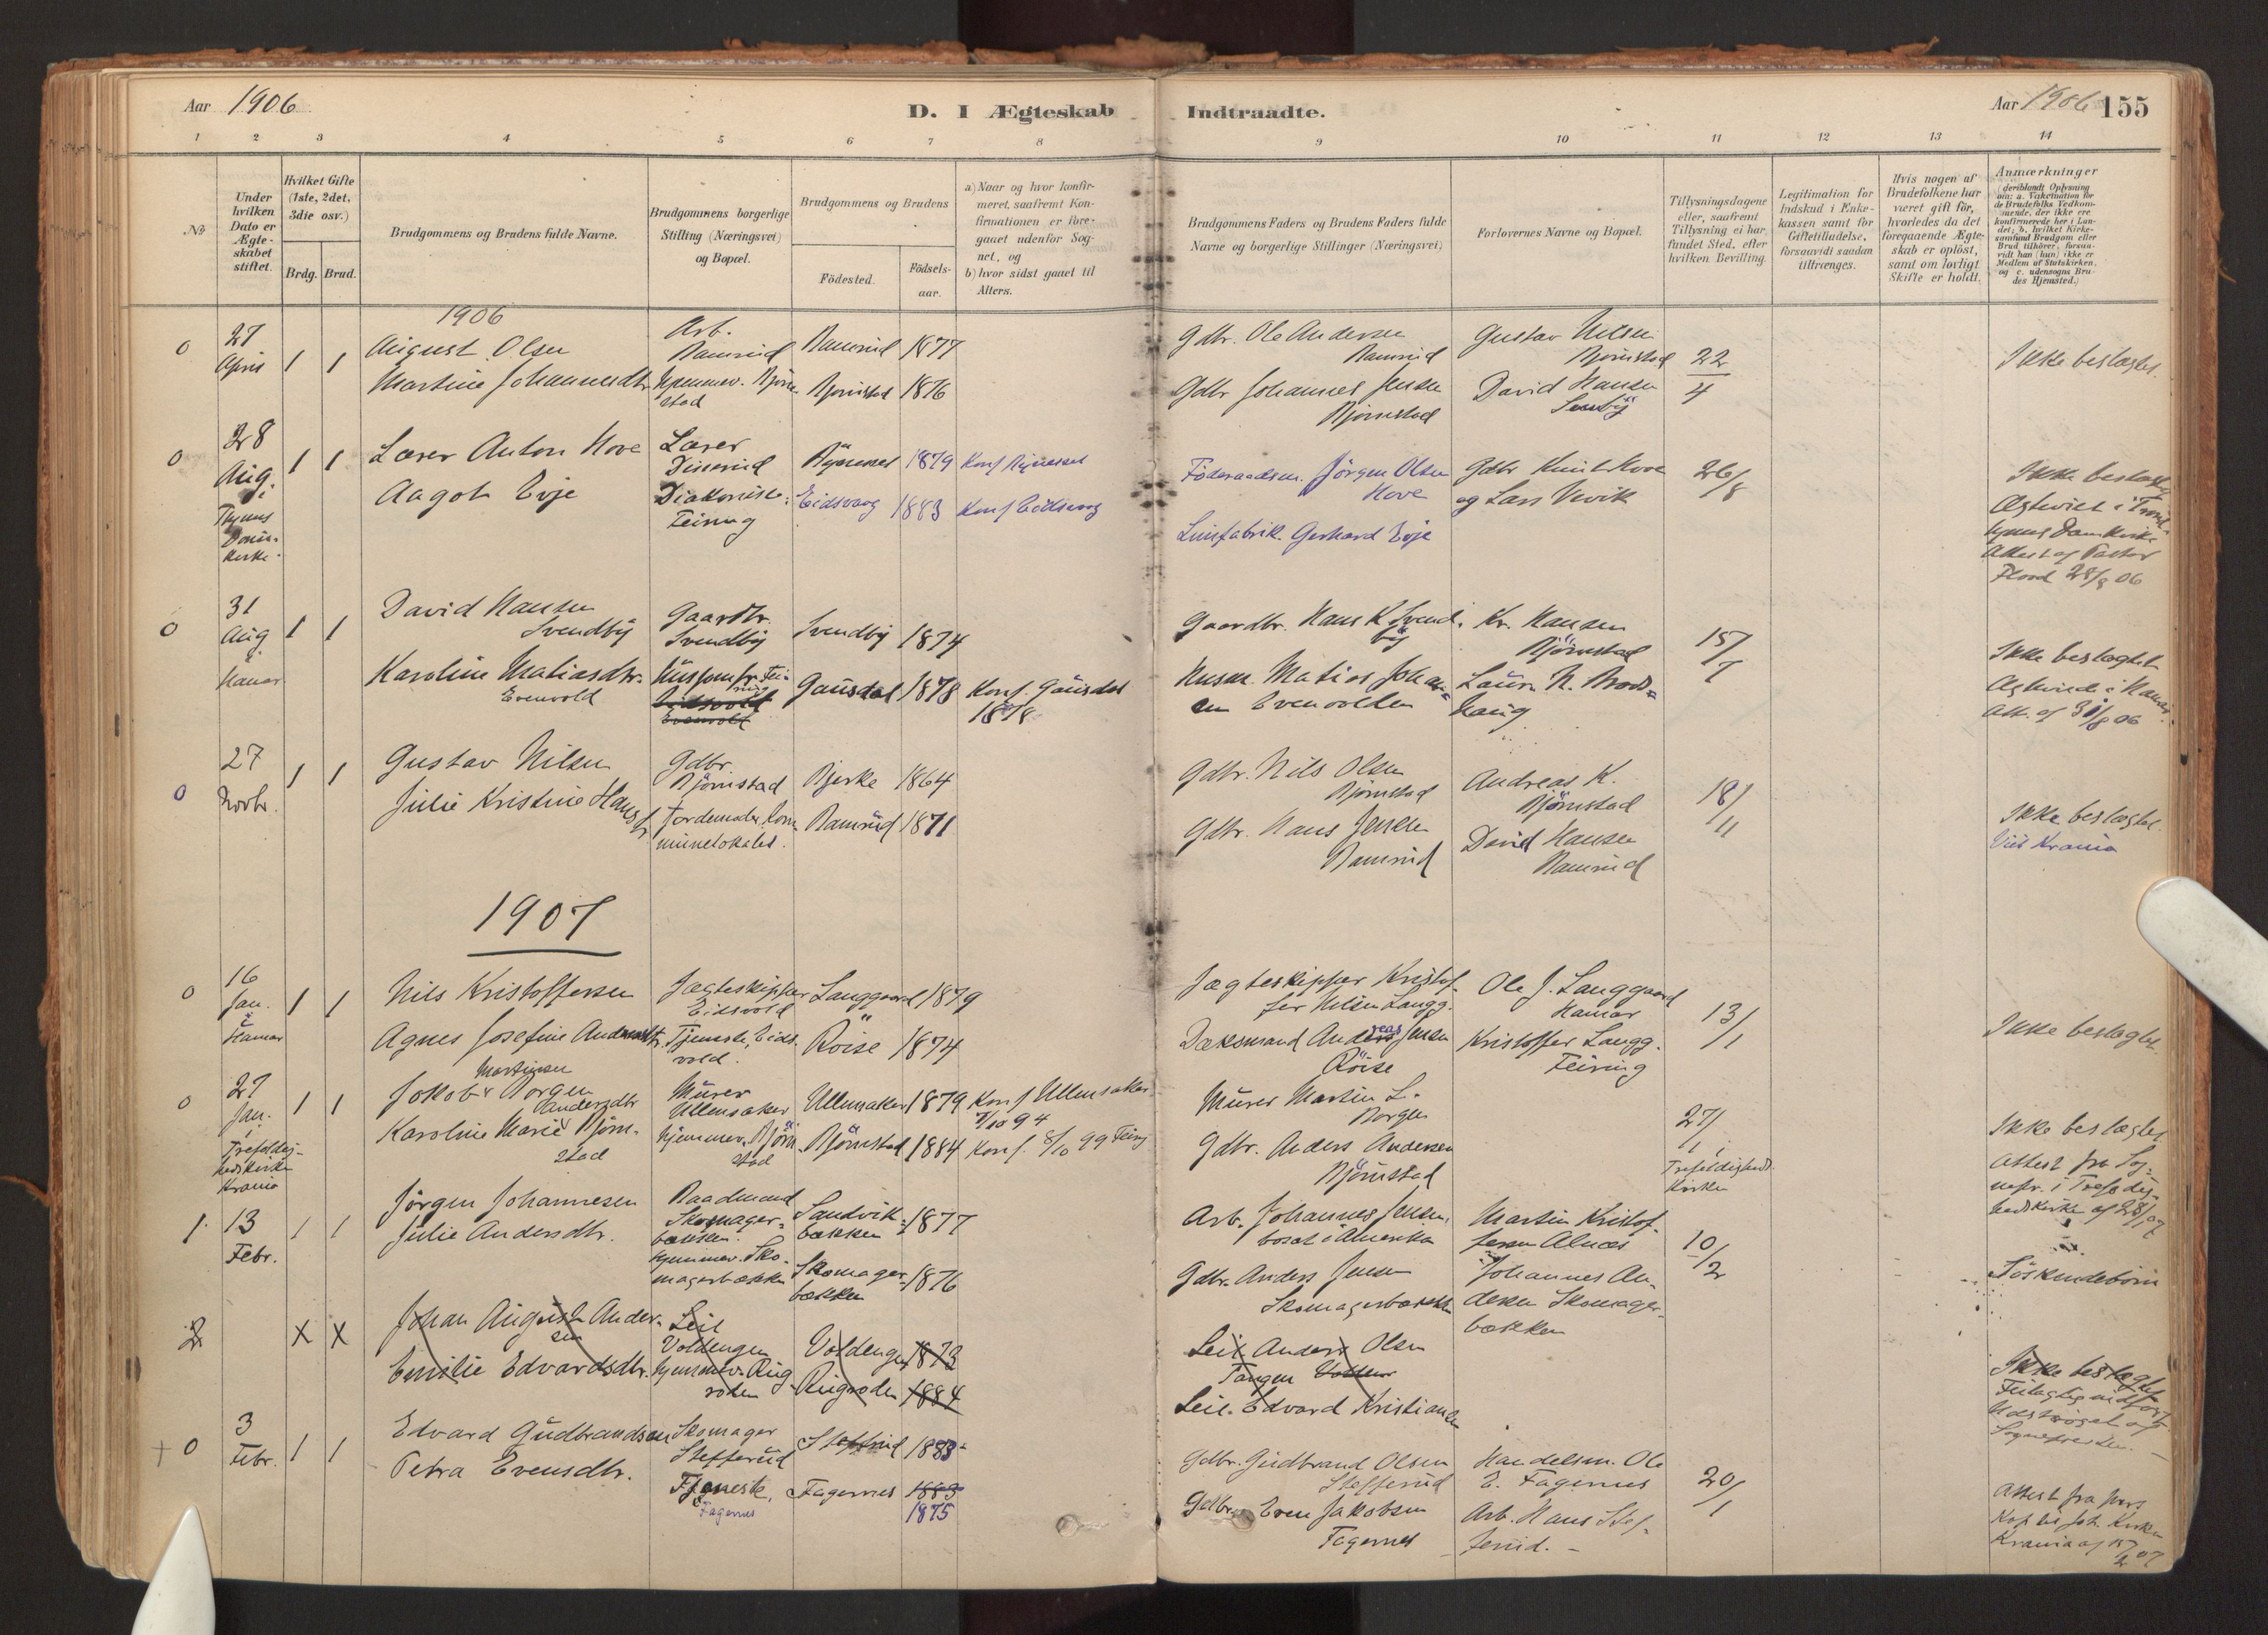 Aar 1906
D. I Ægteskab Indtraadte.
Aar 1906 155
1 2 3 4 5 6 7 8 9 10 11 12 13 14
No
Under hvilken Dato er Ægteskabet stiftet.
Hvilket Gifte (1ste, 2det, 3die osv.)
Brdg. Brud.
Brudgommens og Brudens fulde Navne.
Brudgommens borgerlige Stilling (Næringsvei) og Bopæl.
Brudgommens og Brudens
Födested.
Födselsaar.
a) Naar og hvor konfirmeret, saafremt Konfirmationen er foregaaet udenfor Sognet, og
b) hvor sidst gaaet til Alters.
Brudgommens Faders og Brudens Faders fulde Navne og borgerlige Stillinger (Næringsvei)
Forlovernes Navne og Bopæl.
Tillysningsdagene eller, saafremt Tillysning ei har fundet Sted, efter hvilken Bevilling.
Legitimation for Indskud i Enkekassen samt for Giftetilladelse, forsaavidt saadan tiltrænges.
Hvis nogen af Brudefolkene har været gift för, hvorledes da det foregaaende Ægteskab er oplöst, samt om lovligt Skifte er holdt.
Anmærkninger (deriblandt Oplysning om: a. Vakcination for de Brudefolks Vedkommende, der ikke ere konfirmerede her i Landet; b. hvilket Kirkesamfund Brudgom eller Brud tilhörer, forsaavidt han (hun) ikke er Medlem af Statskirken, og c. udensogns Brudes Hjemsted.)
1906
0 27 April 1 1
August Olsen
Arb. Ramsrud
Ramsrud 1877
Gdbr. Ole Andersen Ramsrud
Gustav Nilsen Bjørnstad
22/4
Ikke beslægtet.
Martine Johannesdtr
Hjemmev. Bjørnstad
Bjørnstad 1876
Gdbr Johannes Jensen Bjørnstad
David Hansen
0 28 Aug. 1 1
Domkirke
Lærer Anton Hove
Lærer
1879
Föderaadsm. Jørgen Olsen Hove
Gdbr Knut Hove og Lars
26/8
Ikke beslægt
Aagot Evje
Diakonisse Feiring
Eidsvaag 1883 Konf Eidsvaag
Gerhard Evje
Domkirke
Attest af Pastor
28/8 06
0 31 Aug Hamar 1 1
David Hansen Svendby
Gaardbr. Svendby
Svendby 1874
Gaardbr. Hans K Svendby
Kr. Hansen Bjørnstad
15/7
Ikke beslægtet
Karoline Matiasdtr. Evenvold
Gausdal 1878 Konf. Gausdal 1878
Husm. Matias Johansen Evenvolden
Laur. N. Brodshaug
Att. af 31/8 06
0 27 Novbr. 1 1
Gustav Nilsen
Gdbr. Bjørnstad
Bjerke 1864
Gdbr. Nils Olsen Bjørnstad
Andreas K. Bjørnstad
18/11
Ikke beslægtet.
Viet Krania
Julie Kristine Hansdtr
Jordemoder, Kommunelokalet.
Ramsrud 1871
Gdbr. Hans Jensen Ramsrud
David Hansen Ramsrud
1907
0 16 Jan. i Hamar 1 1
Nils Kristoffersen
Jægteskipper Eidsvold
Langgaard 1879
Jægteskipper Kristoffer Nilsen Langg.
Ole J. Langgaard Hamar
13/1
Ikke beslægtet.
Agnes Josefine Andreasdtr.
Tjeneste, Eidsvold.
Röise 1874
Dæksmand Andreas Jensen Röise
Kristoffer Langg. Feiring
0 27 Jan. i Trefoldighedskirken Krania 1 1
Jakob Martinsen Borgen
Murer Ullensaker
Ullensaker 1879 Konf Ullensaker 7/10 94
Murer Martin L. Borgen
27/1 i Trefoldigheds Kirken
Ikke beslægtet
Karoline Marie Andersdtr Bjørnstad
Hjemmev. Bjørnstad
Bjørnstad 1884 Konf. 8/10 99 Feiring
Gdbr. Anders Andersen Bjørnstad
Attest fra Sognepr. i Trefoldighedskirken af 28/1 07
1. 13 Febr. 1 1
Jørgen Johannesen
Baadmand Skomagerbækken.
Sandvikbækken 1877
Arb. Johannes Jensen, bosat i Amerika
Martin Kristoffersen Alnæs
10/2
Söskendebörn
Julie Andersdtr.
Hjemmev. Skomagerbækken
Skomagerbækken 1876
Gdbr. Anders Jensen Skomagerbækken
Johannes Andersen Skomagerbækken
2 X X
Johan August Andersen
Leil Voldengen
Voldengen 1873
Leil. Anders Olsen Tangen
Ikke beslægtet
Feilagtig indført
Udströget af Sognepresten.
Emilie Edvardsdtr.
Hjemmev. Rugroden
Rugroden 1884
Leil. Edvard Kristiansen
+ 0 3 Febr. 1 1
Edvard Gudbrandsen
Skomager Stefferud
Stefferud 1883
Gdbr. Gudbrand Olsen Stefferud
Handelsm. Ole E. Fagernes
20/1
Petra Evensdtr.
Tjeneste, Fagernes
Fagernes 1883 1875
Gdbr. Even Jakobsen Fagernes
Arb. Hans Stefferud.
Attest fra pers Kap. til Joh. Kirken Krania af 15/2 07